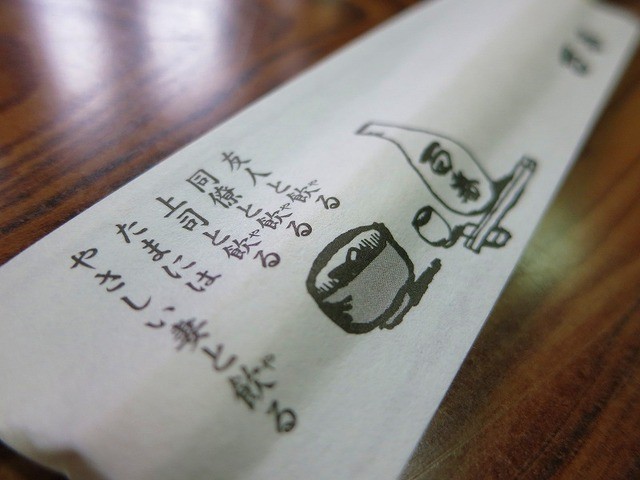 友人と飲る
同僚と飲る
上司と飲る
たまには
やさしい妻と飲る
百番